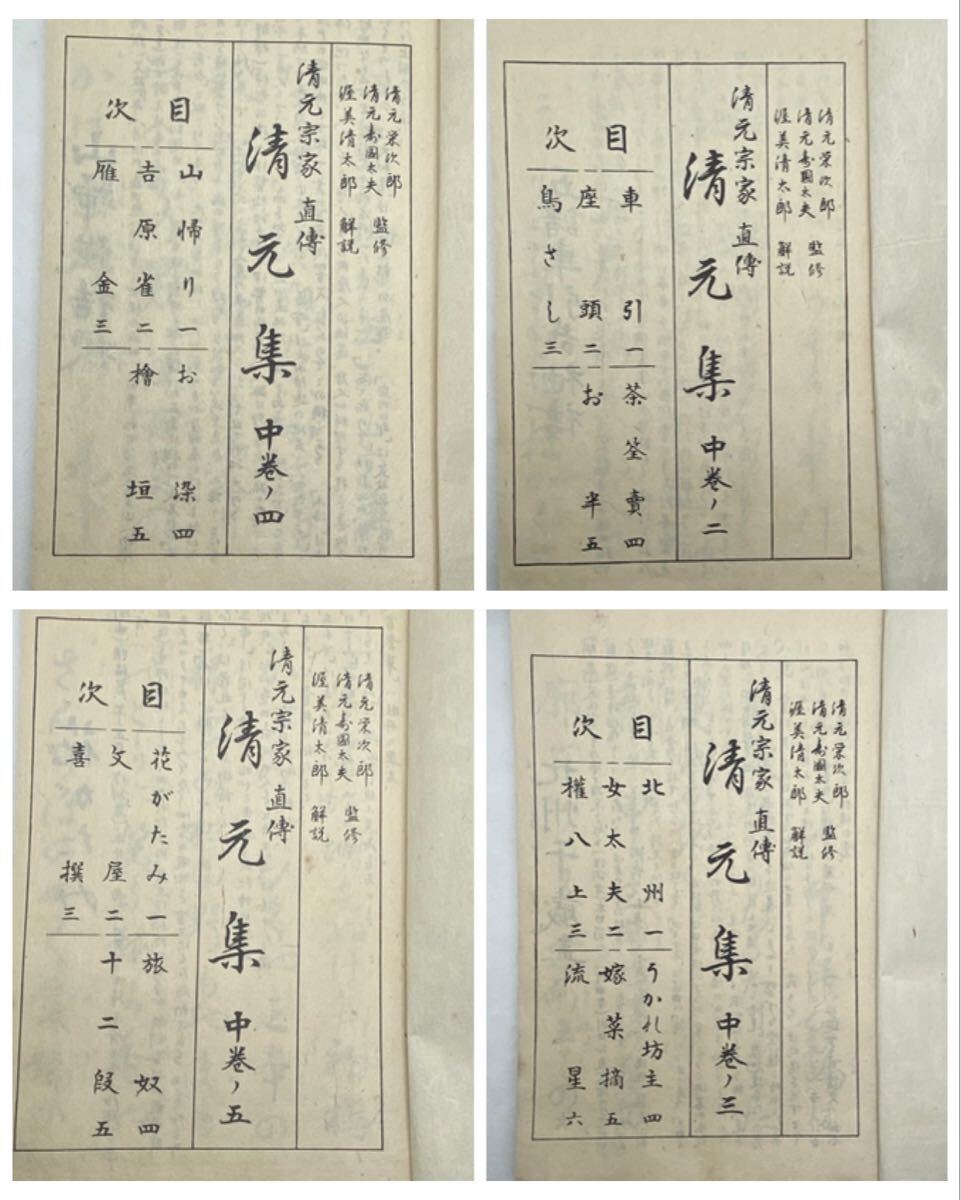 清元栄次郎
清元寿國太夫 監修
渥美清太郎 解説
清元宗家 直傳
清元集 中巻ノ四
目次
山帰り 一
吉原雀 二
雁金 三
お染 四
檜垣 五
清元栄次郎
清元寿國太夫 監修
渥美清太郎 解説
清元宗家 直傳
清元集 中巻ノ二
目次
車引 一
座頭 二
鳥さし 三
茶筌賣 四
お半 五
清元栄次郎
清元寿國太夫 監修
渥美清太郎 解説
清元宗家 直傳
清元集 中巻ノ五
目次
花がたみ 一
文屋 二
喜撰 三
旅奴 四
十二段 五
清元栄次郎
清元寿國太夫 監修
渥美清太郎 解説
清元宗家 直傳
清元集 中巻ノ三
目次
北州 一
女太夫 二
權八上 三
うかれ坊主 四
嫁菜摘 五
流星 六